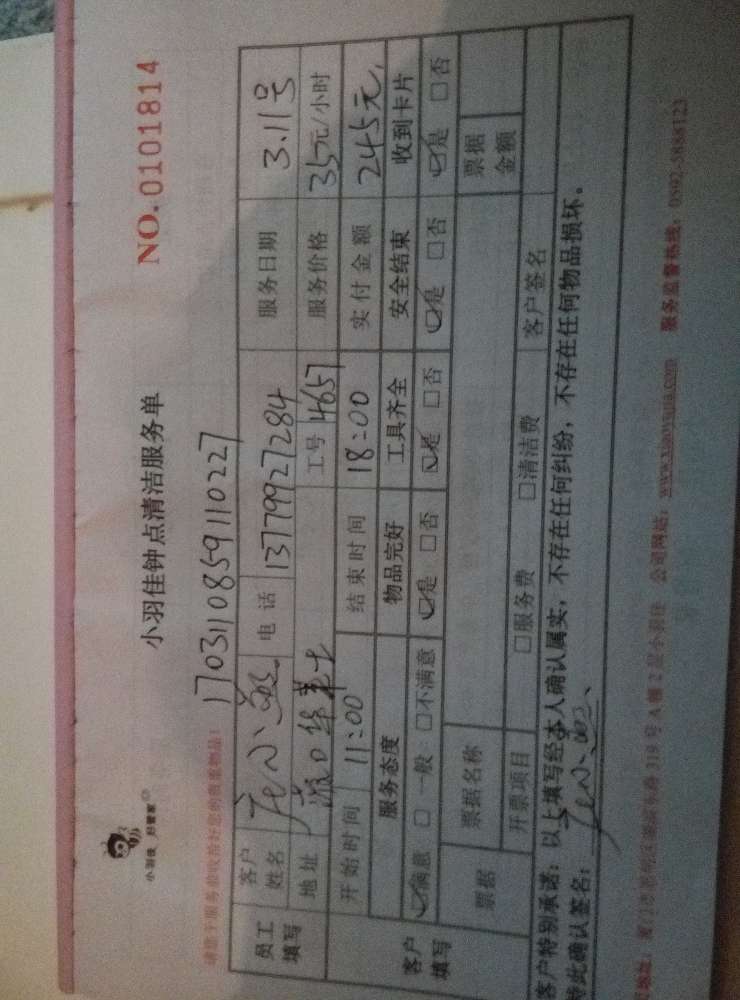 小羽佳 好管家
小羽佳钟点清洁服务单
NO.0101814
请您于服务前收拾好您的贵重物品!
1703110859110227
员工填写
客户姓名 小 电话 13779927284 服务日期 3.11号
地址 工号 4657 服务价格 35元/小时
开始时间 11:00 结束时间 18:00 实付金额 245元
客户填写
服务态度 物品完好 工具齐全 安全结束 收到卡片
☑满意 □一般 □不满意 ☑是 □否 ☑是 □否 ☑是 □否 ☑是 □否
票据 票据名称 票据金额
开票项目 □服务费 □清洁费 客户签名
客户特别承诺:以上填写经本人确认属实,不存在任何纠纷,不存在任何物品损坏。
特此确认签名:
公司网站: 服务监督热线:0592-5888123